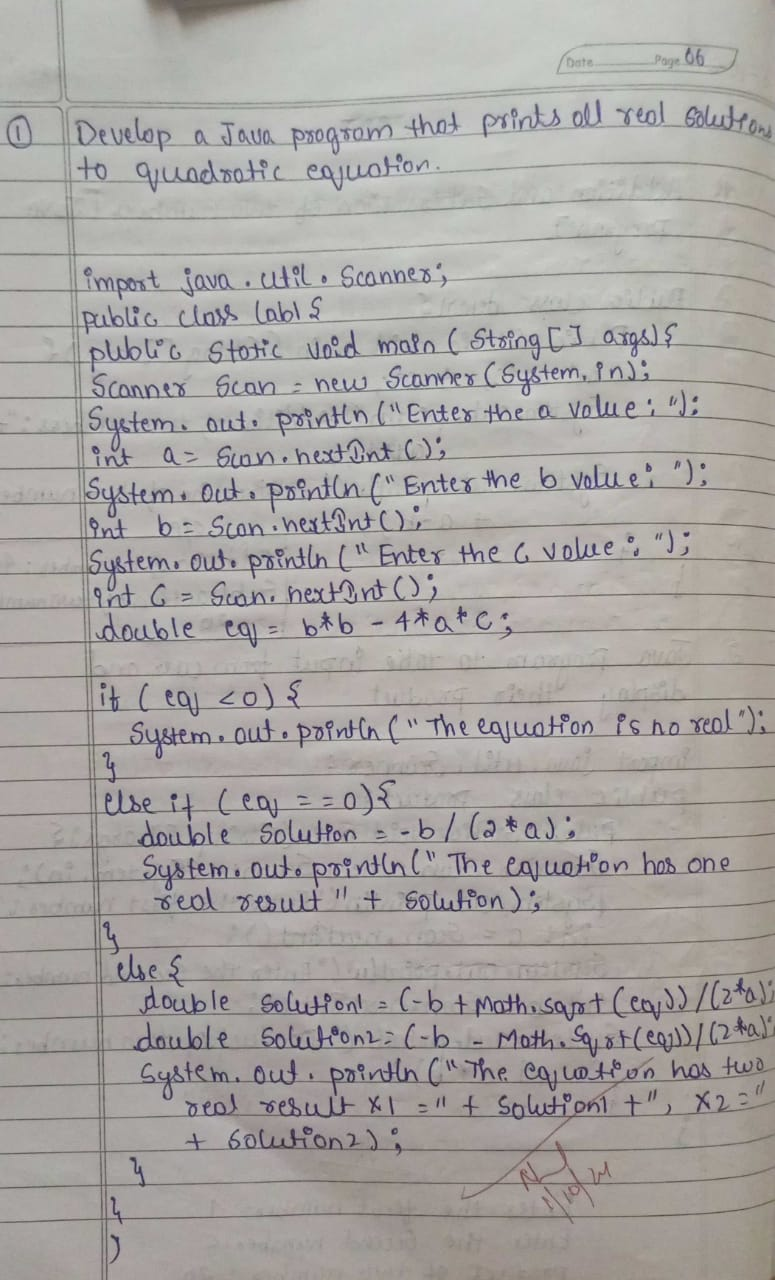 Date Page 06
① Develop a Java program that prints all real solutions
to quadratic equation.
import java.util.Scanner;
public class lab1{
public static void main (String[] args){
Scanner Scan = new Scanner (System.in);
System.out.println("Enter the a value: ");
int a = Scan.nextInt();
System.out.println("Enter the b value: ");
int b = Scan.nextInt();
System.out.println("Enter the c value: ");
int c = Scan.nextInt();
double eq = b*b - 4*a*c;
if (eq <0) {
System.out.println("The equation is no real");
}
else if (eq ==0){
double Solution = -b / (2*a);
System.out.println("The equation has one
real result" + Solution);
}
else {
double Solution1 = (-b + Math.sqrt(eq))/(2*a);
double Solution2 = (-b - Math.sqrt(eq))/(2*a);
System.out.println("The equation has two
real result x1 =" + Solution1 +", x2="
+ Solution2);
}
}
}
1/10/24